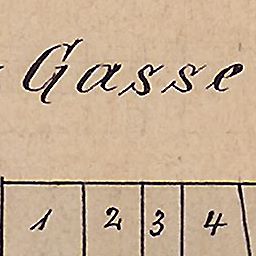 Gasse
1 2 3 4